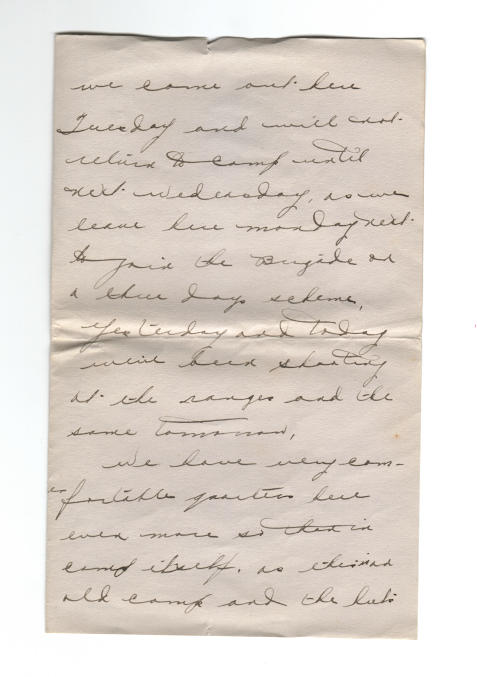 we came out here
Tuesday and will not
return to camp until
next Wednesday, as we
leave here monday next
to join the Brigade on
a three days scheme,
yesterday and today
we've been shooting
at the ranges and the
same tomorrow,
We have very com-
fortable quarters here
even more so than in
camp itself, as this is an
old camp and the huts